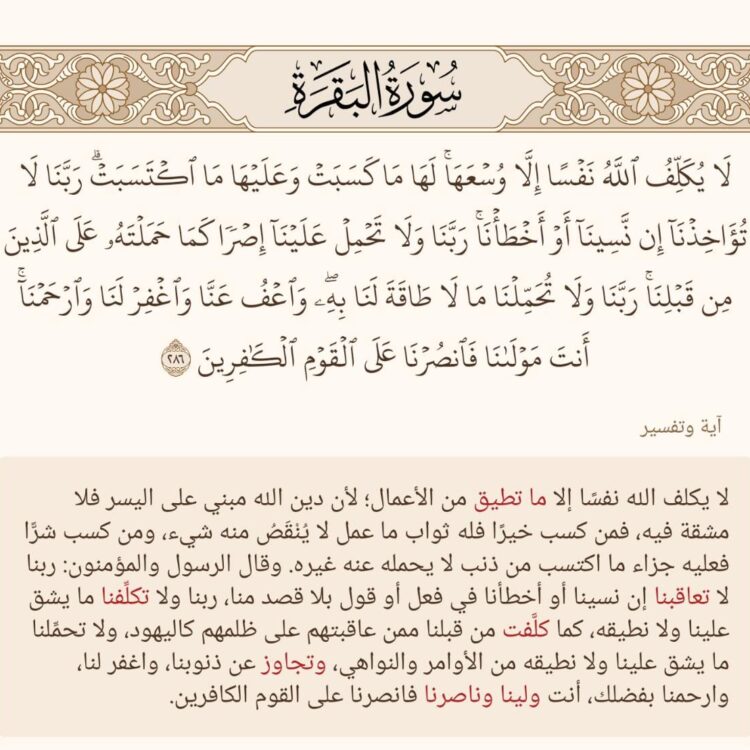 سُورَةُ البَقَرَةِ
لَا يُكَلِّفُ ٱللَّهُ نَفْسًا إِلَّا وُسْعَهَاۚ لَهَا مَا كَسَبَتْ وَعَلَيْهَا مَا ٱكْتَسَبَتْۗ رَبَّنَا لَا
تُؤَاخِذْنَآ إِن نَّسِينَآ أَوْ أَخْطَأْنَاۚ رَبَّنَا وَلَا تَحْمِلْ عَلَيْنَآ إِصْرًا كَمَا حَمَلْتَهُۥ عَلَى ٱلَّذِينَ
مِن قَبْلِنَاۚ رَبَّنَا وَلَا تُحَمِّلْنَا مَا لَا طَاقَةَ لَنَا بِهِۦۖ وَٱعْفُ عَنَّا وَٱغْفِرْ لَنَا وَٱرْحَمْنَآۚ
أَنتَ مَوْلَىٰنَا فَٱنصُرْنَا عَلَى ٱلْقَوْمِ ٱلْكَٰفِرِينَ ٢٨٦
آية وتفسير
لا يكلف الله نفسًا إلا ما تطيق من الأعمال؛ لأن دين الله مبني على اليسر فلا
مشقة فيه، فمن كسب خيرًا فله ثواب ما عمل لا يُنْقَصُ منه شيء، ومن كسب شرًّا
فعليه جزاء ما اكتسب من ذنب لا يحمله عنه غيره. وقال الرسول والمؤمنون: ربنا
لا تعاقبنا إن نسينا أو أخطأنا في فعل أو قول بلا قصد منا، ربنا ولا تكلِّفنا ما يشق
علينا ولا نطيقه، كما كلَّفت من قبلنا ممن عاقبتهم على ظلمهم كاليهود، ولا تحمِّلنا
ما يشق علينا ولا نطيقه من الأوامر والنواهي، وتجاوز عن ذنوبنا، واغفر لنا،
وارحمنا بفضلك، أنت ولينا وناصرنا فانصرنا على القوم الكافرين.